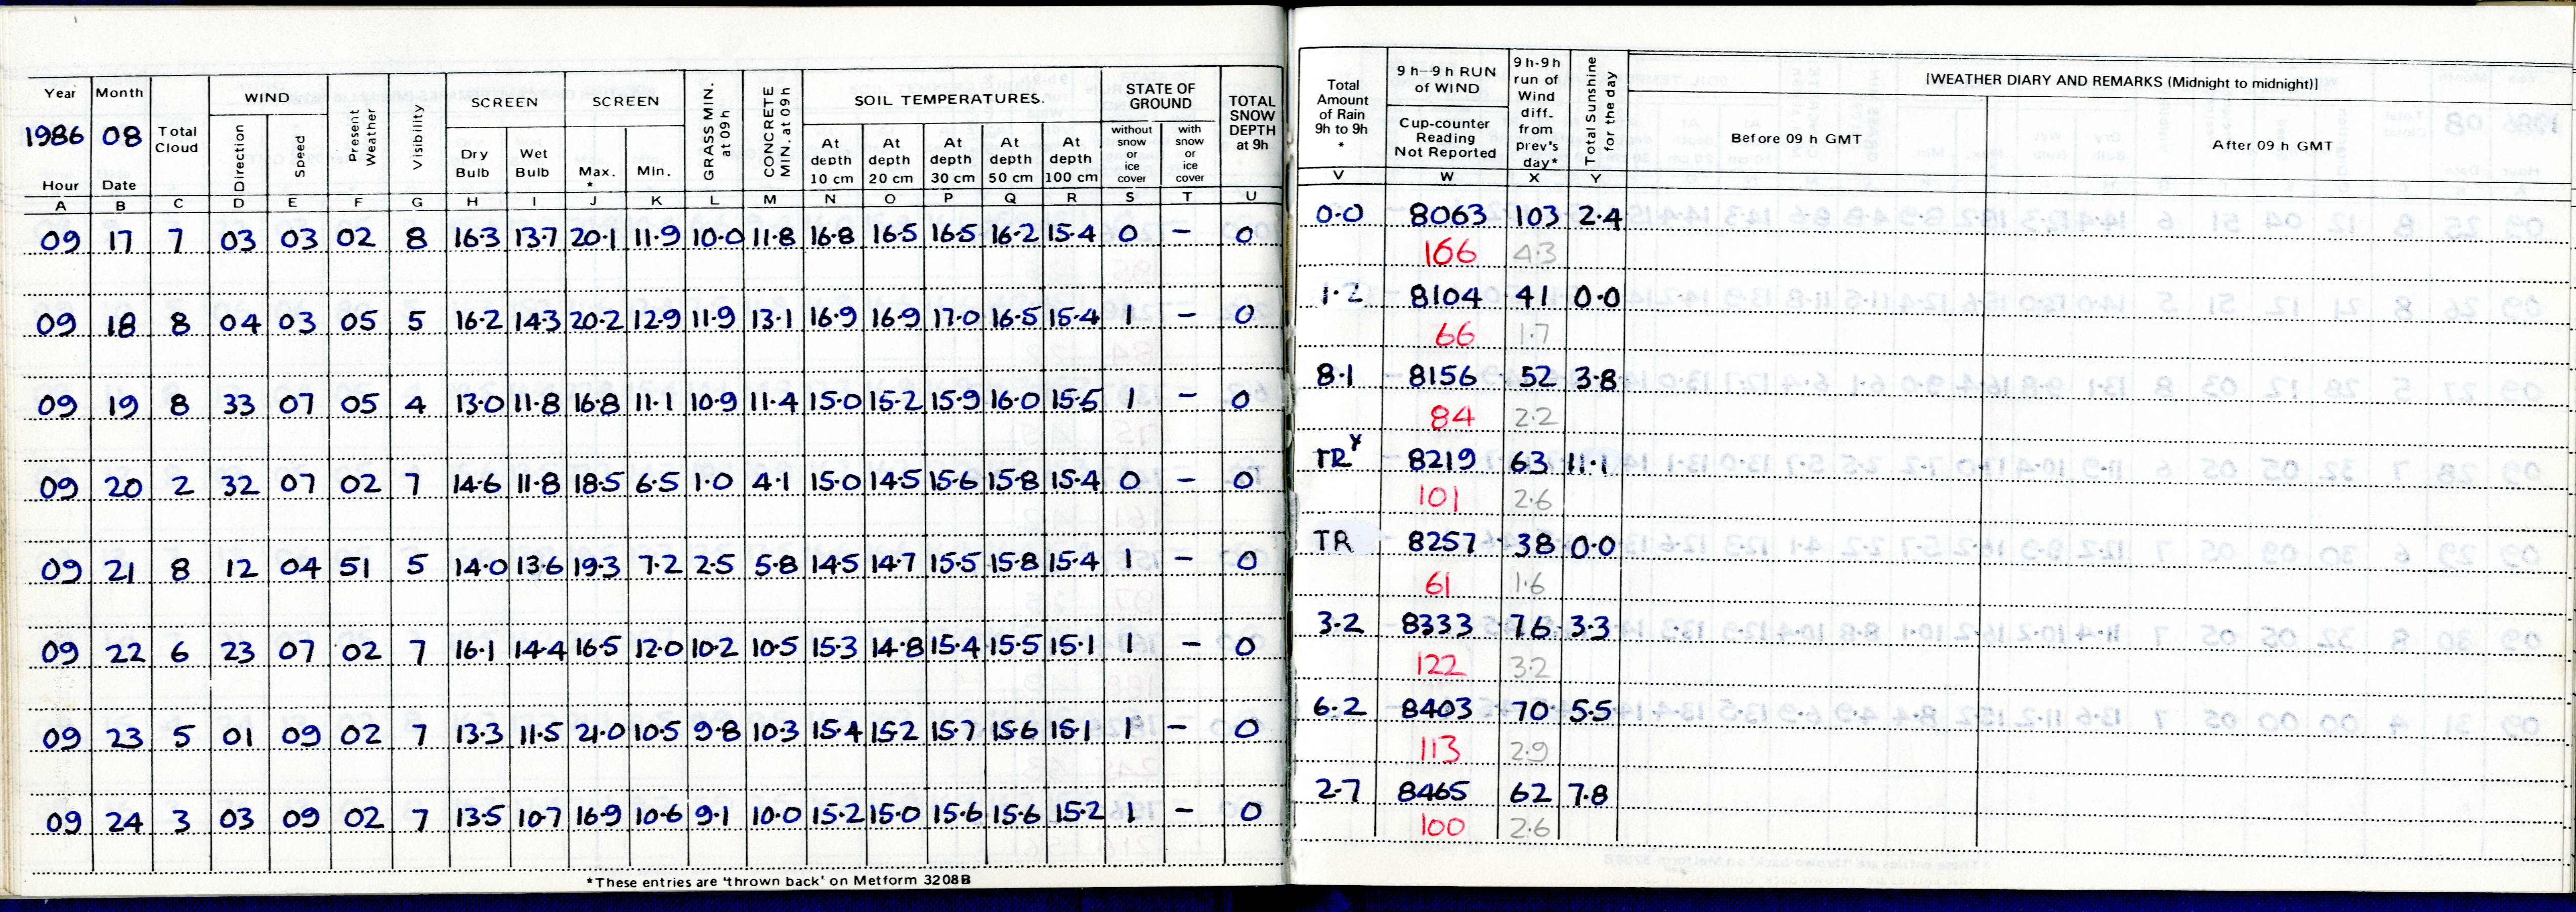 Year Month Total Cloud WIND Present Weather Visibility SCREEN SCREEN GRASS MIN. at 09 h CONCRETE MIN. at 09 h SOIL TEMPERATURES. STATE OF GROUND TOTAL SNOW DEPTH at 9h
1986 08
Hour Date Direction Speed Dry Bulb Wet Bulb Max. * Min. At depth 10 cm At depth 20 cm At depth 30 cm At depth 50 cm At depth 100 cm without snow or ice cover with snow or ice cover
A B C D E F G H I J K L M N O P Q R S T U
09 17 7 03 03 02 8 16.3 13.7 20.1 11.9 10.0 11.8 16.8 16.5 16.5 16.2 15.4 0 – 0
09 18 8 04 03 05 5 16.2 14.3 20.2 12.9 11.9 13.1 16.9 16.9 17.0 16.5 15.4 1 – 0
09 19 8 33 07 05 4 13.0 11.8 16.8 11.1 10.9 11.4 15.0 15.2 15.9 16.0 15.5 1 – 0
09 20 2 32 07 02 7 14.6 11.8 18.5 6.5 1.0 4.1 15.0 14.5 15.6 15.8 15.4 0 – 0
09 21 8 12 04 51 5 14.0 13.6 19.3 7.2 2.5 5.8 14.5 14.7 15.5 15.8 15.4 1 – 0
09 22 6 23 07 02 7 16.1 14.4 16.5 12.0 10.2 10.5 15.3 14.8 15.4 15.5 15.1 1 – 0
09 23 5 01 09 02 7 13.3 11.5 21.0 10.5 9.8 10.3 15.4 15.2 15.7 15.6 15.1 1 – 0
09 24 3 03 09 02 7 13.5 10.7 16.9 10.6 9.1 10.0 15.2 15.0 15.6 15.6 15.2 1 – 0
*These entries are 'thrown back' on Metform 3208B
Total Amount of Rain 9h to 9h * 9 h–9 h RUN of WIND Cup-counter Reading Not Reported 9 h-9 h run of Wind diff- from prev's day* Total Sunshine for the day [WEATHER DIARY AND REMARKS (Midnight to midnight)]
Before 09 h GMT After 09 h GMT
V W X Y
0.0 8063 103 2.4
166 4.3
1.2 8104 41 0.0
66 1.7
8.1 8156 52 3.8
84 2.2
TR 8219 63 11.1
101 2.6
TR 8257 38 0.0
61 1.6
3.2 8333 76 3.3
122 3.2
6.2 8403 70 5.5
113 2.9
2.7 8465 62 7.8
100 2.6